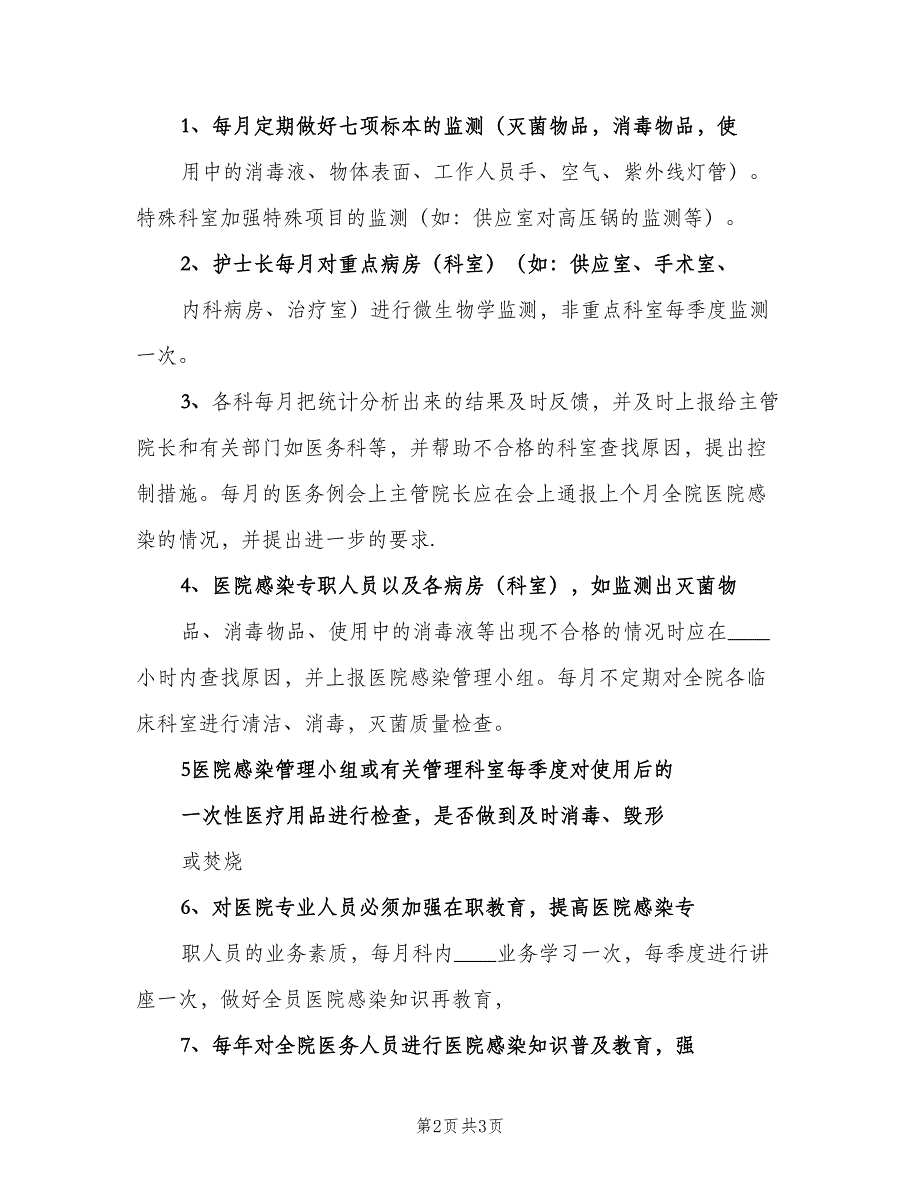 1、每月定期做好七项标本的监测（灭菌物品，消毒物品，使
用中的消毒液、物体表面、工作人员手、空气、紫外线灯管）。
特殊科室加强特殊项目的监测（如：供应室对高压锅的监测等）。
2、护士长每月对重点病房（科室）（如：供应室、手术室、
内科病房、治疗室）进行微生物学监测，非重点科室每季度监测
一次。
3、各科每月把统计分析出来的结果及时反馈，并及时上报给主管
院长和有关部门如医务科等，并帮助不合格的科室查找原因，提出控
制措施。每月的医务例会上主管院长应在会上通报上个月全院医院感
染的情况，并提出进一步的要求.
4、医院感染专职人员以及各病房（科室），如监测出灭菌物
品、消毒物品、使用中的消毒液等出现不合格的情况时应在____
小时内查找原因，并上报医院感染管理小组。每月不定期对全院各临
床科室进行清洁、消毒，灭菌质量检查。
5医院感染管理小组或有关管理科室每季度对使用后的
一次性医疗用品进行检查，是否做到及时消毒、毁形
或焚烧
6、对医院专业人员必须加强在职教育，提高医院感染专
职人员的业务素质，每月科内____业务学习一次，每季度进行讲
座一次，做好全员医院感染知识再教育，
7、每年对全院医务人员进行医院感染知识普及教育，强
第2页 共3页